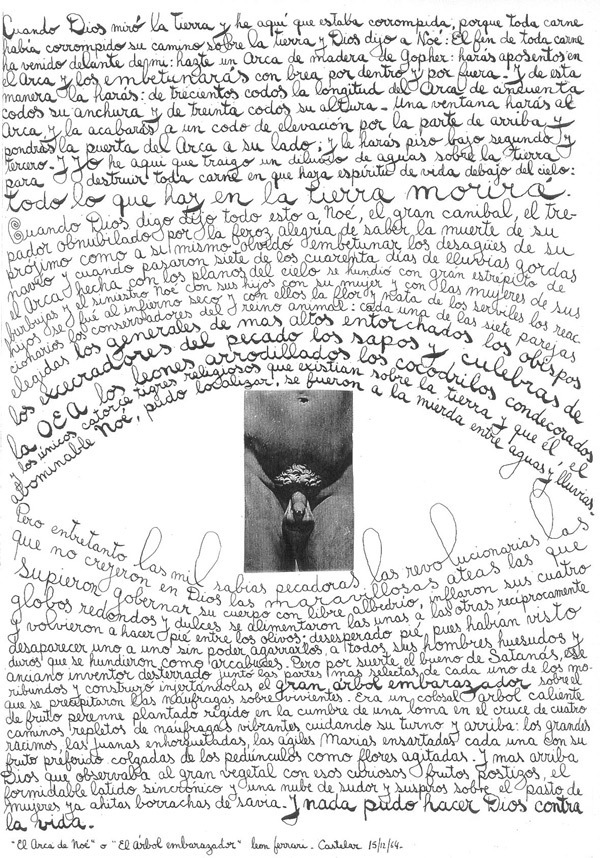 Cuando Dios miró la tierra y he aquí que estaba corrompida; porque toda carne
había corrompido su camino sobre la tierra y Dios dijo a Noé: El fin de toda carne
ha venido delante de mi: hazte un Arca de madera de Gopher: harás aposentos en
el Arca y los embetunarás con brea por dentro y por fuera. Y de esta
manera la harás: de trecientos codos la longitud del Arca de cincuenta
codos su anchura y de treinta codos su altura. Una ventana harás al
Arca, y la acabarás a un codo de elevación por la parte de arriba y
pondrás la puerta del Arca a su lado; y le harás piso bajo segundo y
tercero. Y Yo he aquí que traigo un diluvio de aguas sobre la tierra
para destruir toda carne en que haya espíritu de vida debajo del cielo:
todo lo que hay en la tierra morirá.
Cuando Dios digo dijo todo esto a Noé, el gran canibal, el tre-
pador obnubilado por la feroz alegría de saber la muerte de su
prójimo como a su mismo olvidó embetunar los desagües de su
navío y cuando pasaron siete de los cuarenta días de lluvias gordas
el Arca hecha con los planos del cielo se hundió con gran estrépito de
burbujas y el siniestro Noé con sus hijos con su mujer y con las mujeres de sus
hijos se fué al infierno seco y con ellos la flor y nata de los serviles los reac
cionarios los conservadores del reino animal: cada una de las siete parejas
elegidas los generales de mas altos entorchados los obispos
los execradores del pecado los sapos y culebras de
la OEA los leones arrodillados los cocodrilos condecorados
y los únicos catorce tigres religiosos que existían sobre la tierra y que él, el
abominable Noé, pudo localizar, se fueron a la mierda entre aguas y lluvias.
Pero entretanto las mil sabias pecadoras las revolucionarias las
que no creyeron en Dios las maravillosas ateas las que
supieron gobernar su cuerpo con libre albedrío, inflaron sus cuatro
globos redondos y dulces se alimentaron las unas a las otras recíprocamente
y volvieron a hacer pie entre los olivos: desesperado pie pues habían visto
desaparecer uno a uno sin poder agarrarlos, a todos sus hombres huesudos y
duros que se hundieron como arcabuces. Pero por suerte, el bueno de Satanás, ese
anciano inventor desterrado juntó las partes mas selectas de cada uno de los mo-
ribundos y construyó injertándolas el gran árbol embarazador sobre el
que se precipitaron las náufragas sobrevivientes. Era un colosal árbol caliente
de fruto perenne plantado rígido en la cumbre de una loma en el cruce de cuatro
caminos repletos de náufragas vibrantes cuidando su turno y arriba: los grandes
racimos, las Juanas enhorquetadas, las ágiles Marías ensartadas cada una con su
fruto preferido colgadas de los pedúnculos como flores agitadas. Y mas arriba
Dios que observaba al gran vegetal con esos curiosos frutos postizos, el
formidable latido sincrónico y una nube de sudor y suspiros sobre el pasto de
mujeres ya ahitas borrachas de savia. Y nada pudo hacer Dios contra
la vida.
"El Arca de Noé" o "El Árbol embarazador" leon ferrari - Castelar 15/12/64.